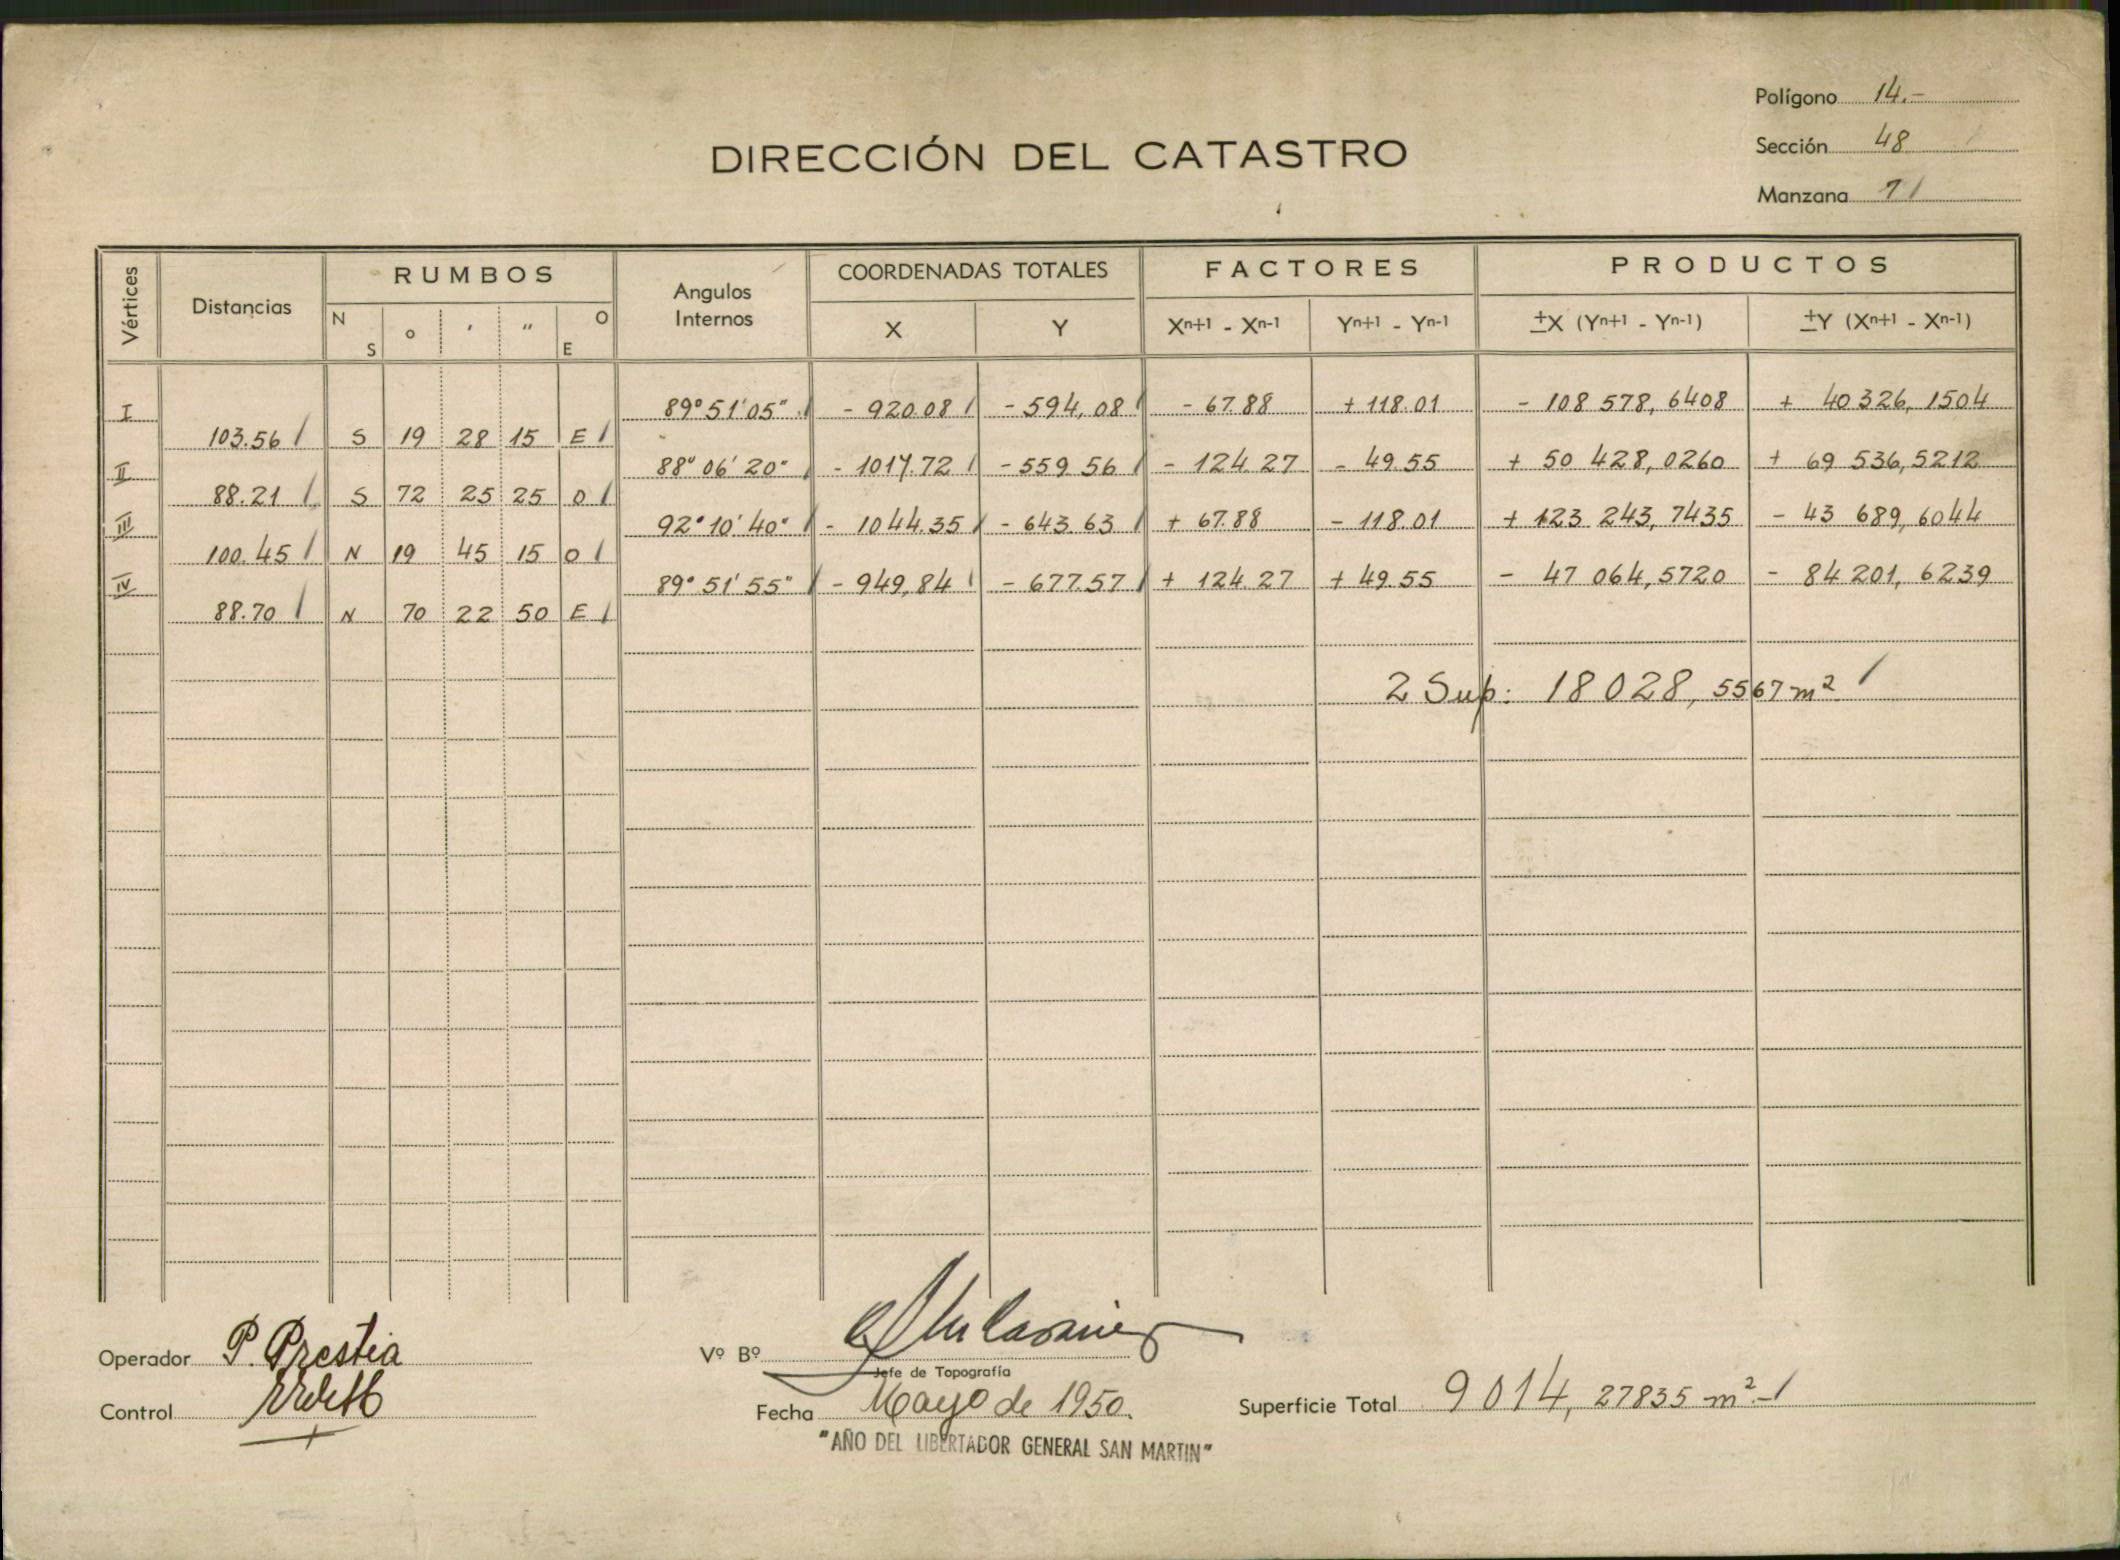 Polígono 14.-
Sección 48
Manzana 71
DIRECCIÓN DEL CATASTRO
Vértices Distancias RUMBOS Angulos Internos COORDENADAS TOTALES FACTORES PRODUCTOS
N S ° ' " O E X Y Xn+1 - Xn-1 Yn+1 - Yn-1 ±X (Yn+1 - Yn-1) ±Y (Xn+1 - Xn-1)
I 89° 51' 05" - 920.08 - 594,08 - 67.88 + 118.01 - 108 578, 6408 + 40 326, 1504
103.56 S 19 28 15 E
II 88° 06' 20" - 1017.72 - 559 56 - 124.27 - 49.55 + 50 428,0260 + 69 536,5212
88.21 S 72 25 25 O
III 92° 10' 40" - 1044.35 - 643.63 + 67.88 - 118.01 + 123 243, 7435 - 43 689, 6044
100.45 N 19 45 15 O
IV 89° 51' 55" - 949,84 - 677.57 + 124.27 + 49.55 - 47 064,5720 - 84 201, 6239
88.70 N 70 22 50 E
2 Sup: 18 028, 5567 m²
Operador P. Prestia
Control
Vº Bº
Jefe de Topografía
Fecha Mayo de 1950.
"AÑO DEL LIBERTADOR GENERAL SAN MARTIN"
Superficie Total 9 014, 27835 m².-